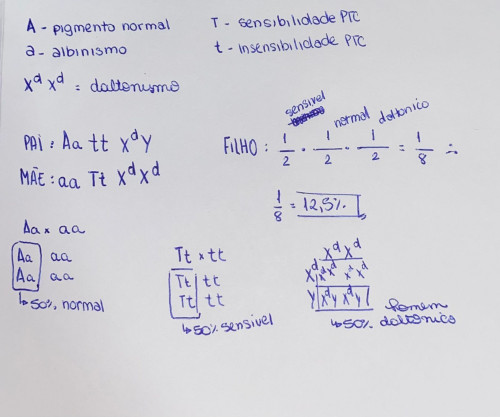 A - pigmento normal
a - albinismo
X^d X^d = daltonismo
T - sensibilidade PTC
t - insensibilidade PTC
PAI: Aa tt X^dY
MÃE: aa Tt X^dX^d
sensivel normal daltonico
FILHO: 1/2 . 1/2 . 1/2 = 1/8 ∴
1/8 = 12,5%
Aa x aa
Aa aa
Aa aa
↳ 50% normal
Tt x tt
Tt tt
Tt tt
↳ 50% sensivel
X^d X^d
X^d X^dX^d X^dX^d
Y X^dY X^dY
↳ 50% homem daltonico